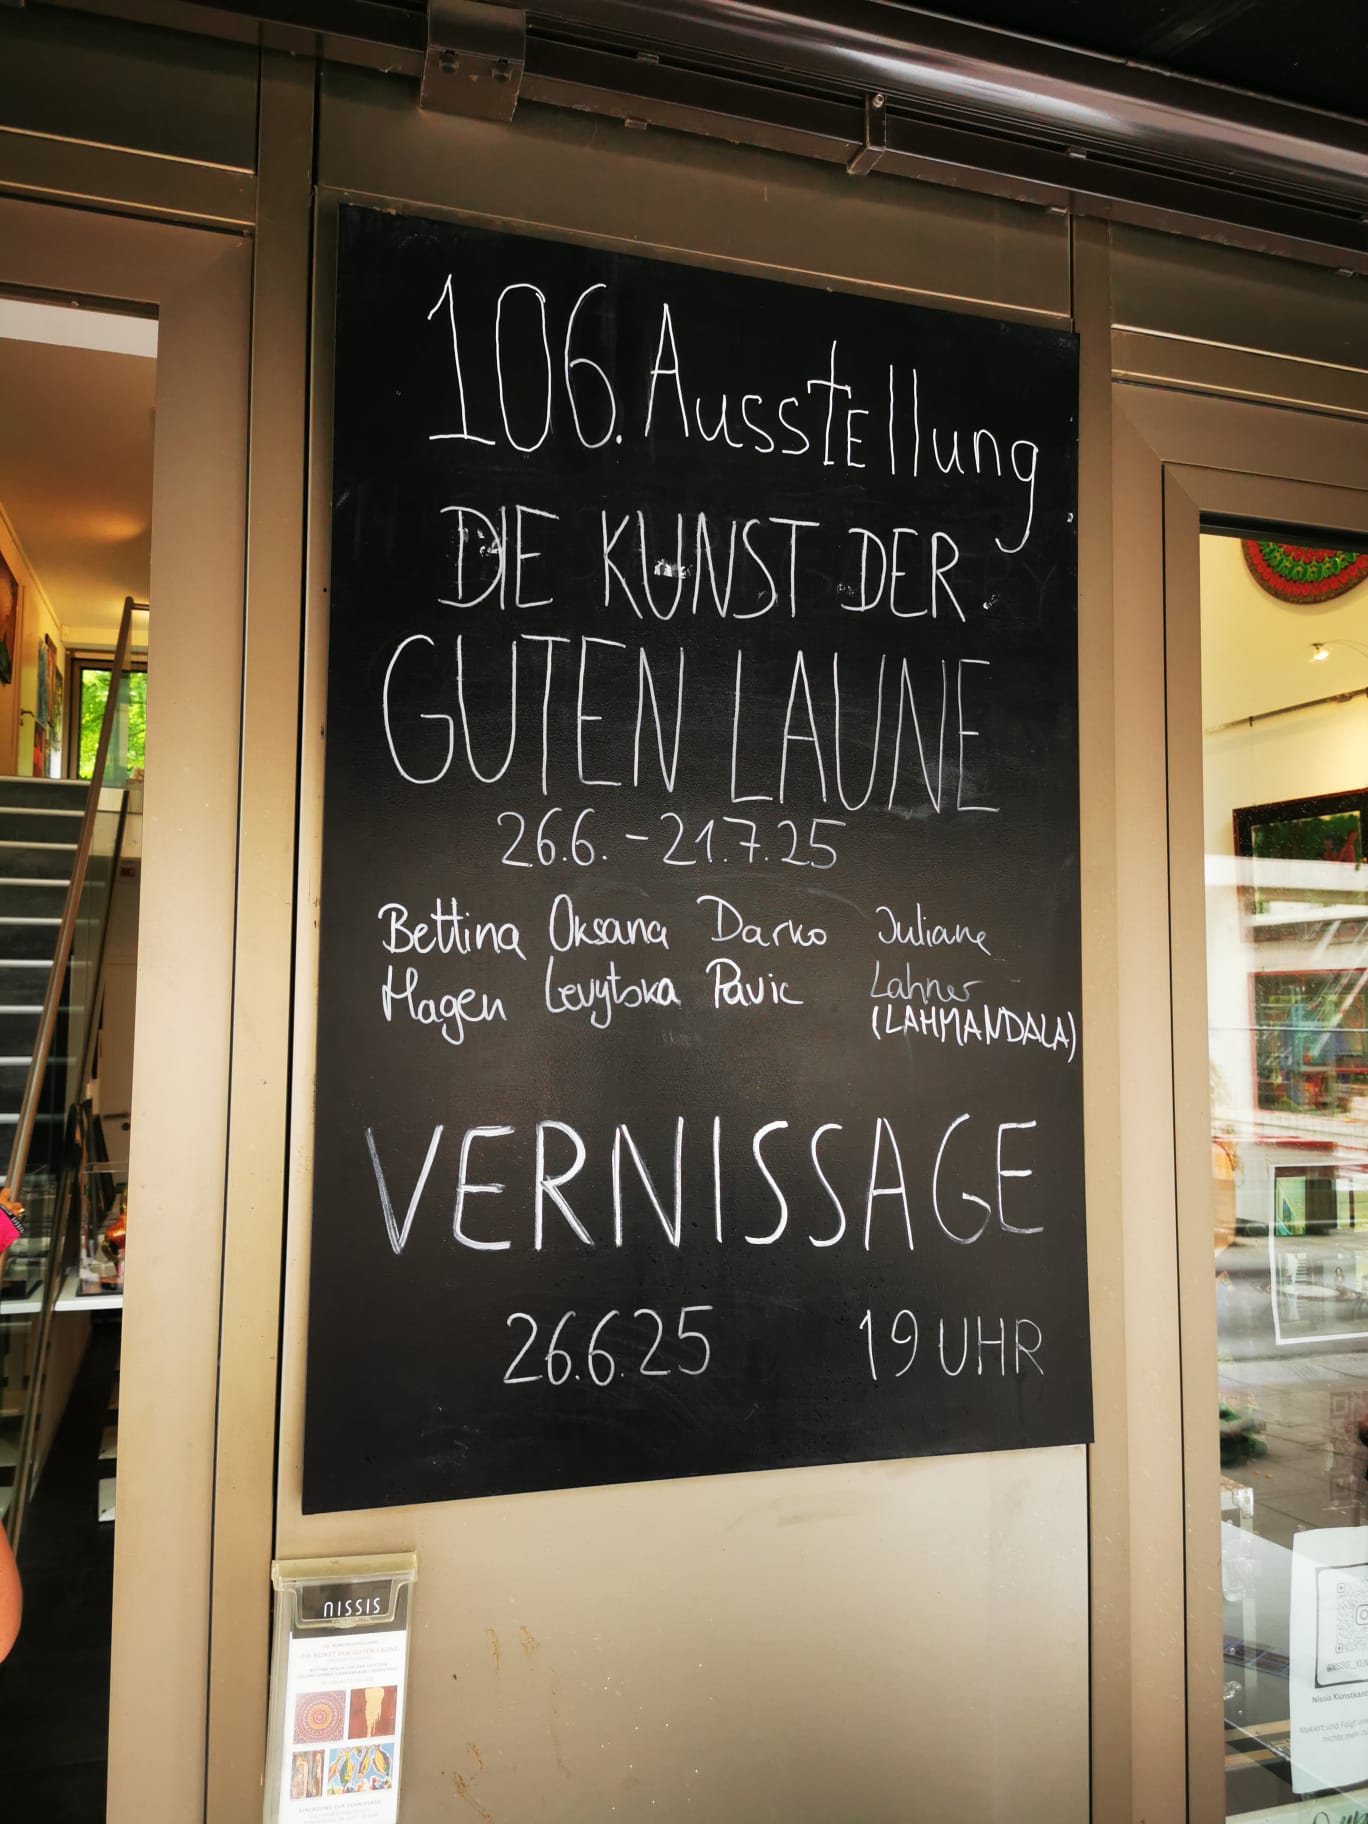 106. Ausstellung
DIE KUNST DER
GUTEN LAUNE
26.6. - 21.7.25
Bettina Oksana Darko Juliane
Hagen Levytska Pavic Lahner
(LAHMANDALA)
VERNISSAGE
26.6.25 19 UHR
nissis
DIE KUNST DER GUTEN LAUNE
EINLADUNG ZUR VERNISSAGE
Nissis Kunstkan